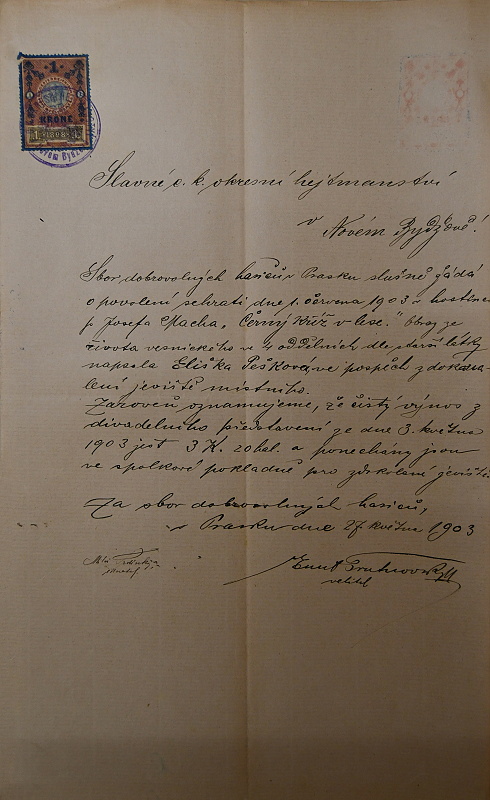 1
KRONE
1 1898 K
Slavné c. k. okresní hejtmanství
v Novém Bydžově!
Sbor dobrovolných hasičů v Prasku slušně žádá
o povolení sehrati dne 1. června 1903 v hostinci
p. Josefa Macha "Černý kříž v lese." Obraz ze
života vesnického ve 4 odděleních dle starší látky
napsala Eliška Pešková ve prospěch zdokona-
lení jeviště místního.
Zároveň oznamujeme, že čistý výnos z
divadelního představení ze dne 3. května
1903 jest 3 K. 20 hal. a ponechány jsou
ve spolkové pokladně pro zdokonalení jeviště.
Za sbor dobrovolných hasičů,
v Prasku dne 27. května 1903
jednatel
velitel